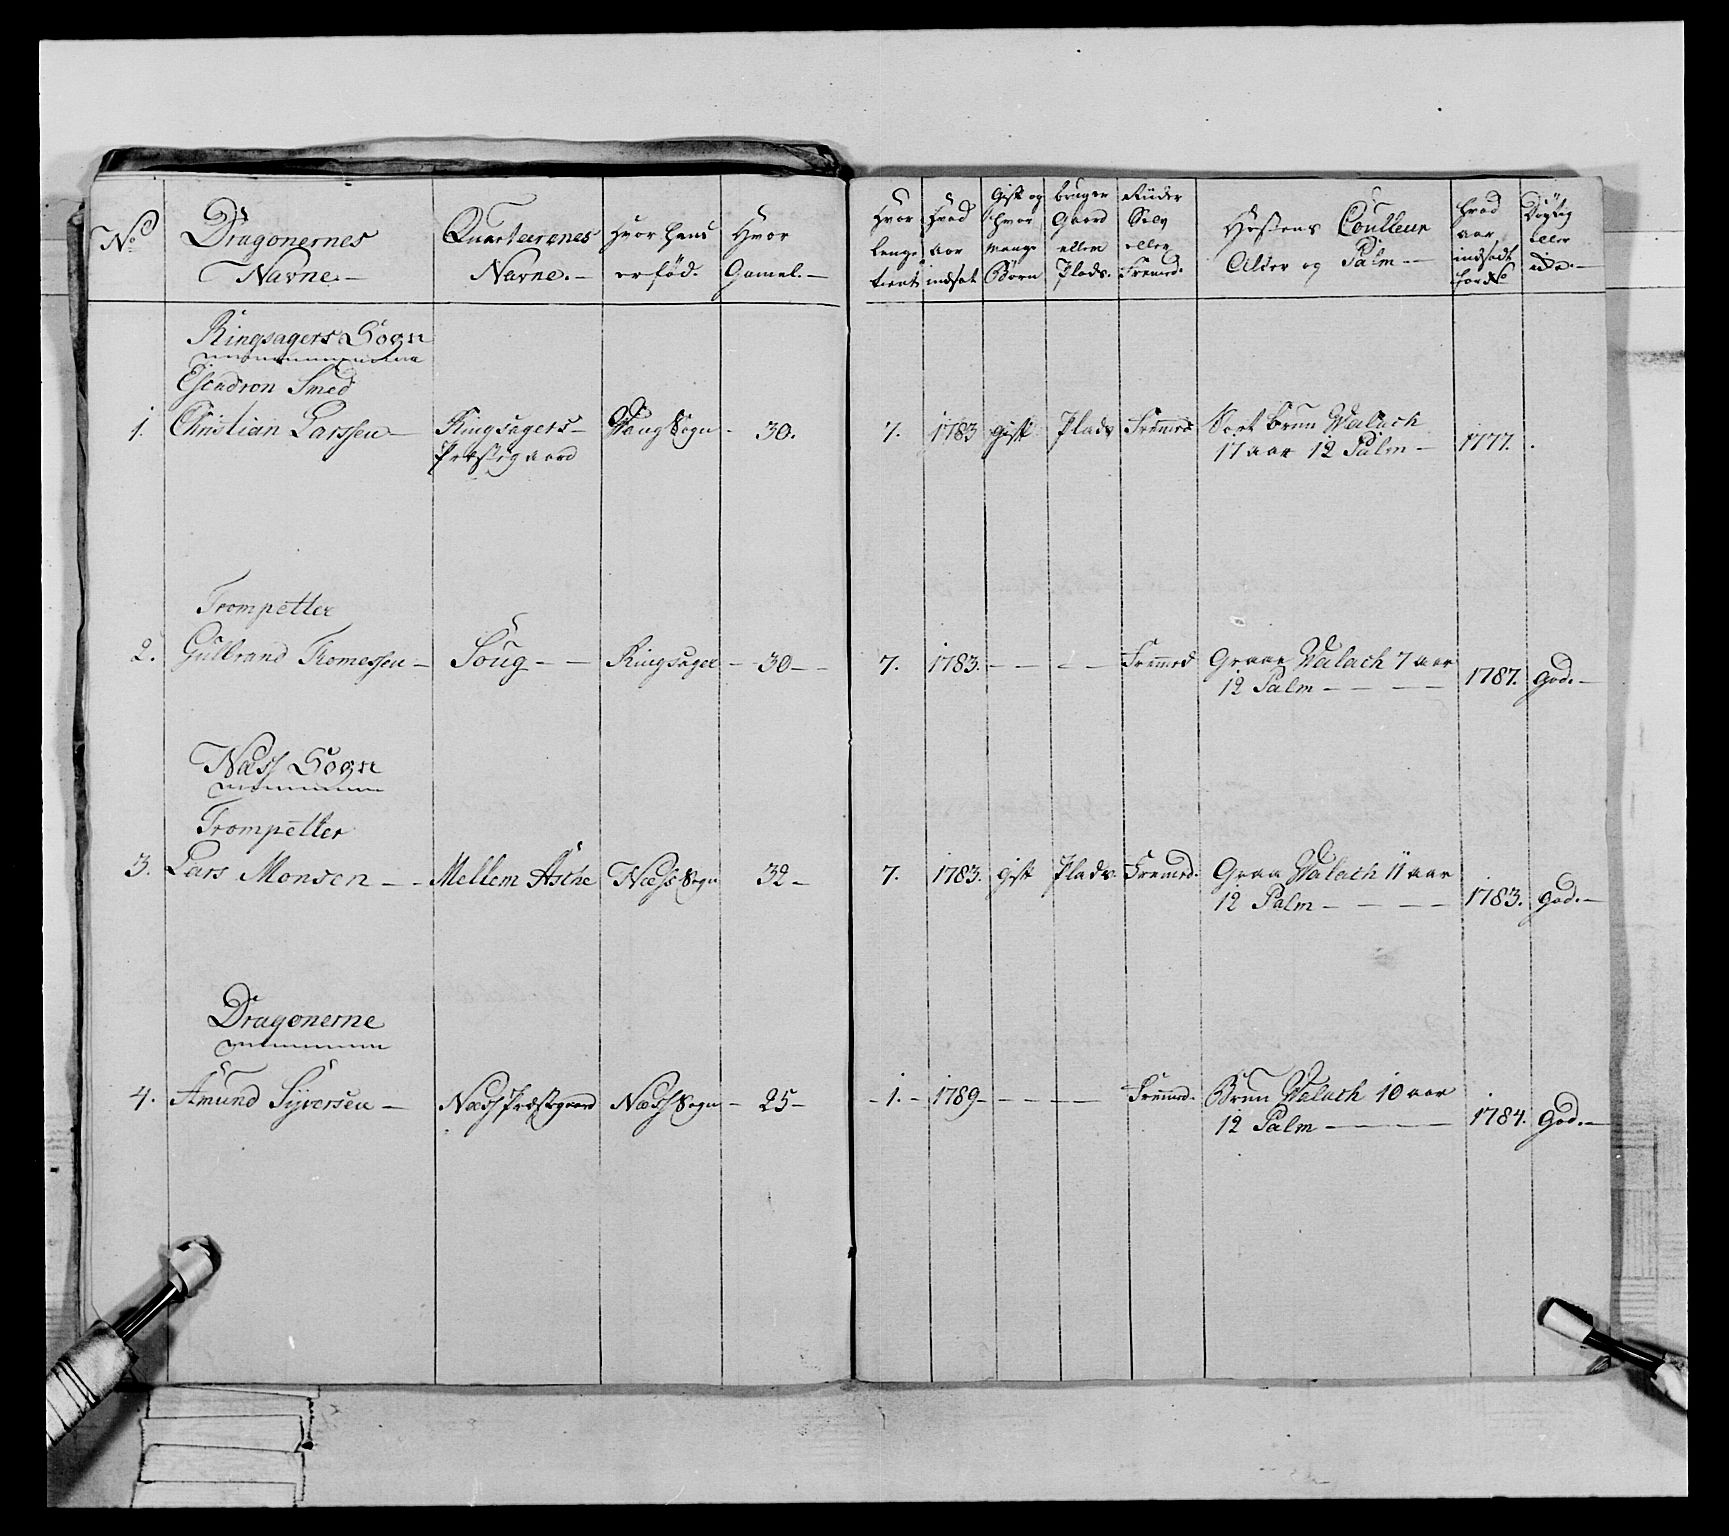 No
Dragonernes
Navne.
Quarteerenes
Navne.
Hvor hans
er fød.
Hvor
Gamel.
Hvor
lenge
tient
Hvad
aar
indsat
Gift og
hvor
mange
Børn
bruger
Gaard
eller
Plads.
Riider
Selv
eller
Fremed.
Hæstens Couleur
Alder og Palm
hvad
aar
indsadt
Dygtig
eller
Ringsagers Sogn
Esqadron Smed
1. Christian Larssen Ringsagers Vang Sogn 30. 7. 1783 gift Plads Fremed Sort brun Walach
Præstegaard 17 aar 12 Palm 1777.
Trompetter
2. Gulbrand Tomessen Soug Ringsager 30 7. 1783. Fremmed Graae Walach 7 aar
12 Palm 1787. god.
Næss Sogn
Trompetter
3. Lars Monsen Mellem Asche Næss Sogn 32 7. 1783. gift Plads Fremed. Graa Walach 11 aar
12 Palm 1783. god.
Dragonerne
4. Amund Syversen Næss Præstgaard Næss Sogn 25 1. 1789 Fremed. Brun Walach 10 aar
12 Palm 1784. god.